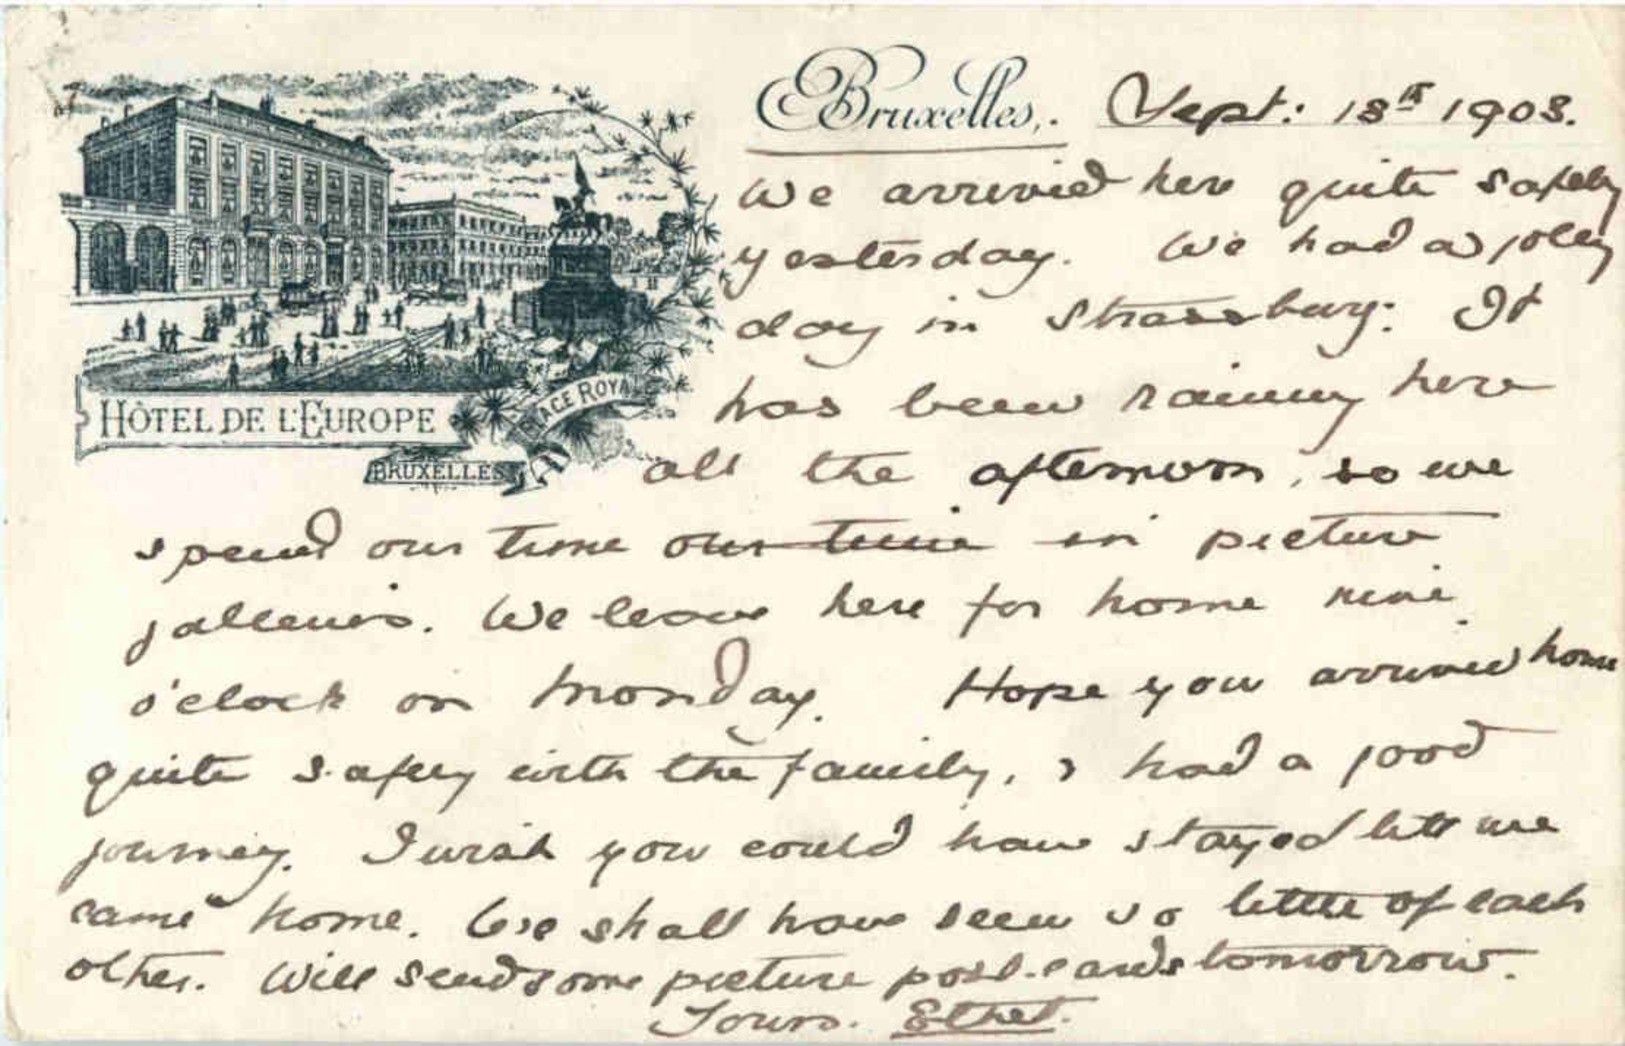 Bruxelles, Sept: 13th 1903.
We arrived here quite safely
yesterday. We had a jolly
day in Strassburg. It
has been raining here
all the afternoon, so we
HÔTEL DE L'EUROPE
PLACE ROYALE
BRUXELLES
spend our time our time in picture
galleries. We leave here for home nine
o'clock on Monday. Hope you arrived home
quite safely with the family, & had a good
journey. I wish you could have stayed till we
came home. We shall have seen so little of each
other. Will send some picture post-cards tomorrow.
Yours. Ethel.